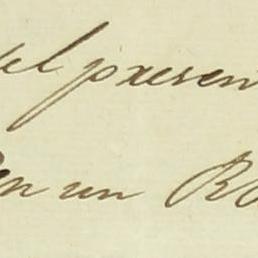 el presen
en un Ro